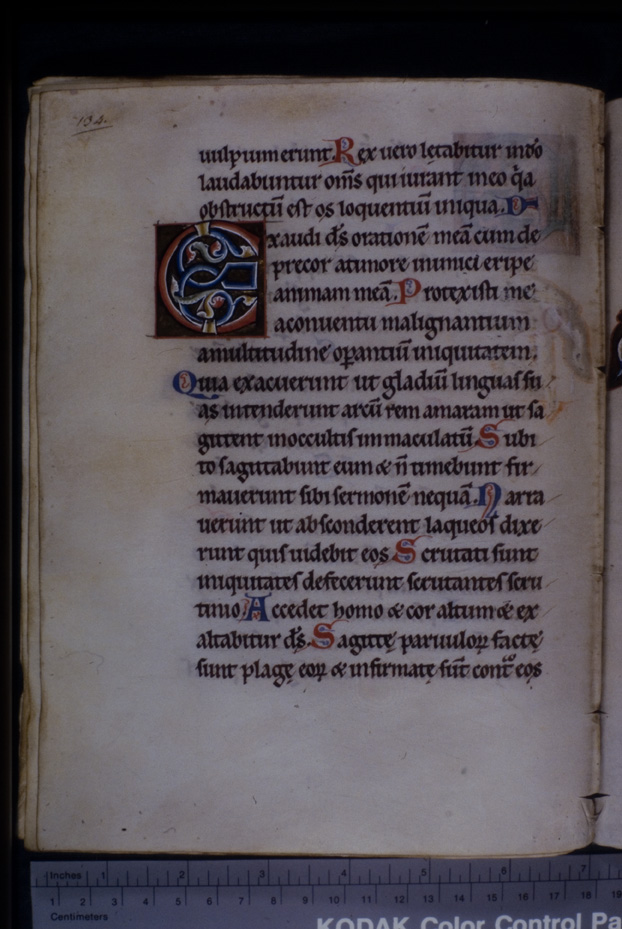 134.
uulpium erunt. Rex uero lętabitur indō
laudabuntur om̄s qui iurant ineo q̄a
obstructū est os loquentiū iniqua. D
Exaudi d̄s orationē meā cum de
precor atimore inimici eripe
animam meā. Protexisti me
aconuentu malignantium
amultitudine opantiū iniquitatem.
Quia exacuerunt ut gladiū linguas su
as intenderunt arcū rem amaram ut sa
gittent inoccultis immaculatū. Subi
to sagittabunt eum & n̄ timebunt fir
mauerunt sibi sermonē nequā. Narra
uerunt ut absconderent laqueos dixe
runt quis uidebit eos Scrutati sunt
iniquitates defecerunt scrutantes scru
tinio. Accedet homo & cor altum & ex
altabitur d̄s. Sagittę paruuloꝝ factę
sunt plagę eoꝝ & infirmatę sūt cont̄ eos
Inches 1 2 3 4 5 6 7
1 2 3 4 5 6 7 8 9 10 11 12 13 14 15 16 17 18 19
Centimeters
KODAK Color Control Pa